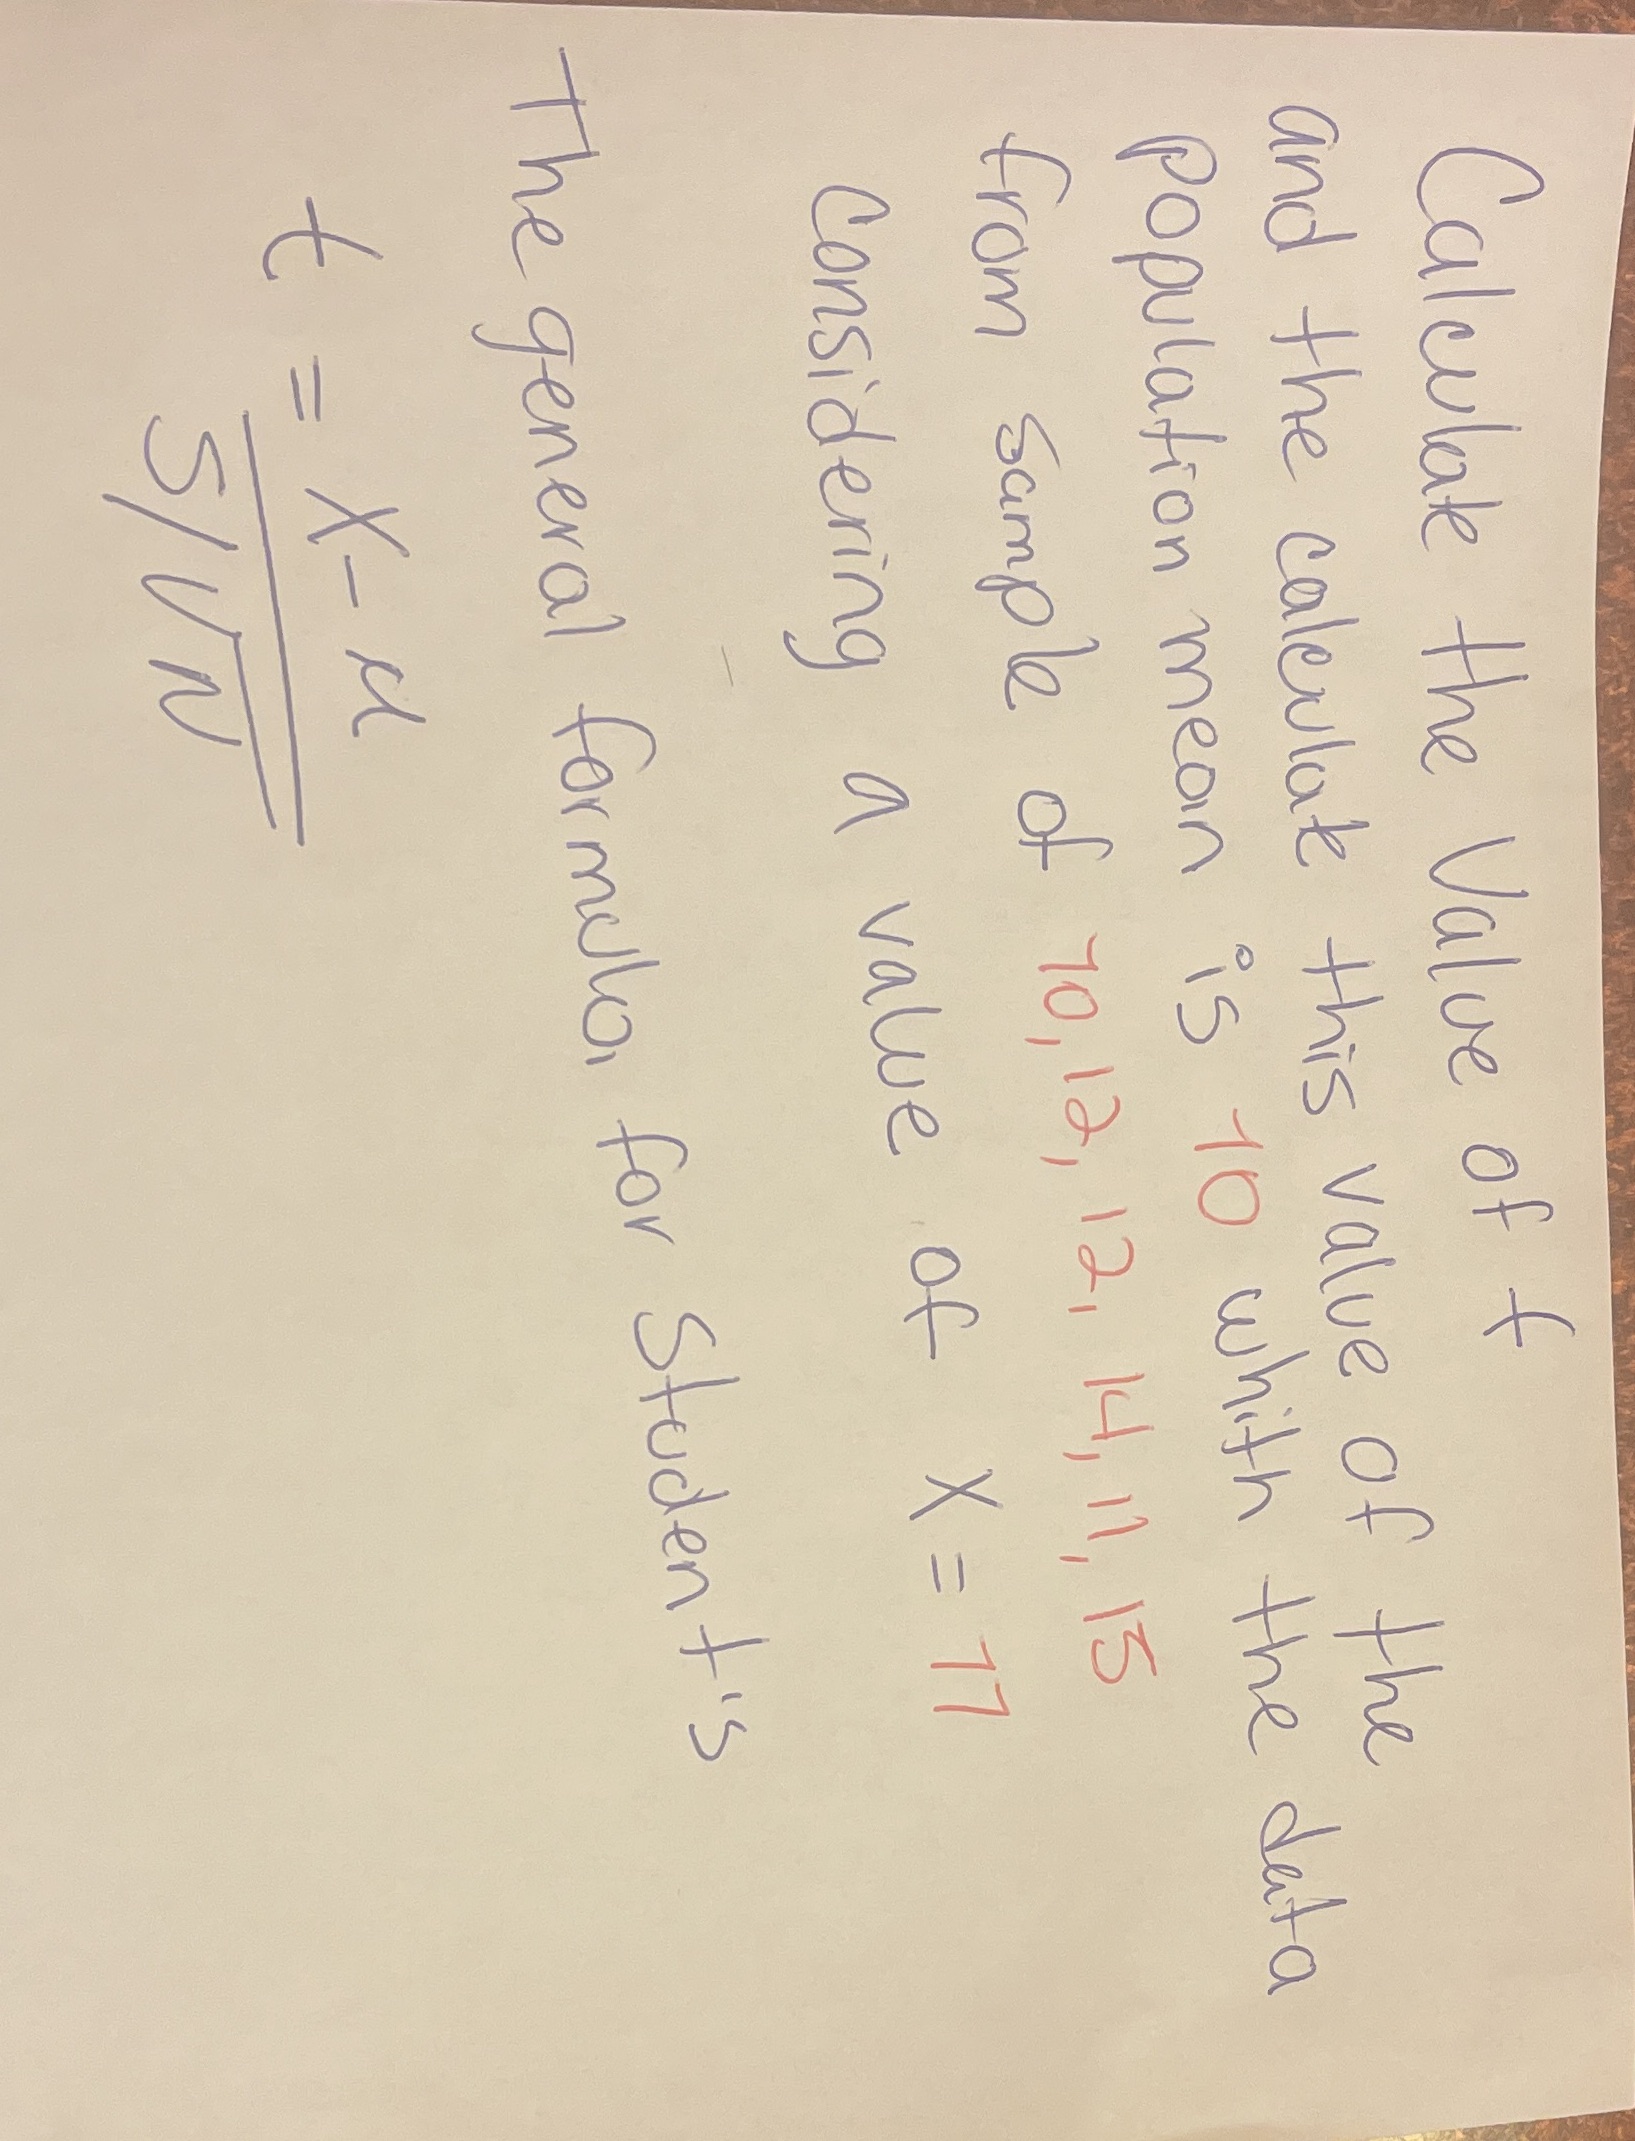 Calculate the Value of t
and the calculate this value of the
population mean is 10 whith the data
from sample of 10, 12, 12, 14, 11, 15
considering a value of X = 11
The general formula for Student's
t = X - μ
S/√N